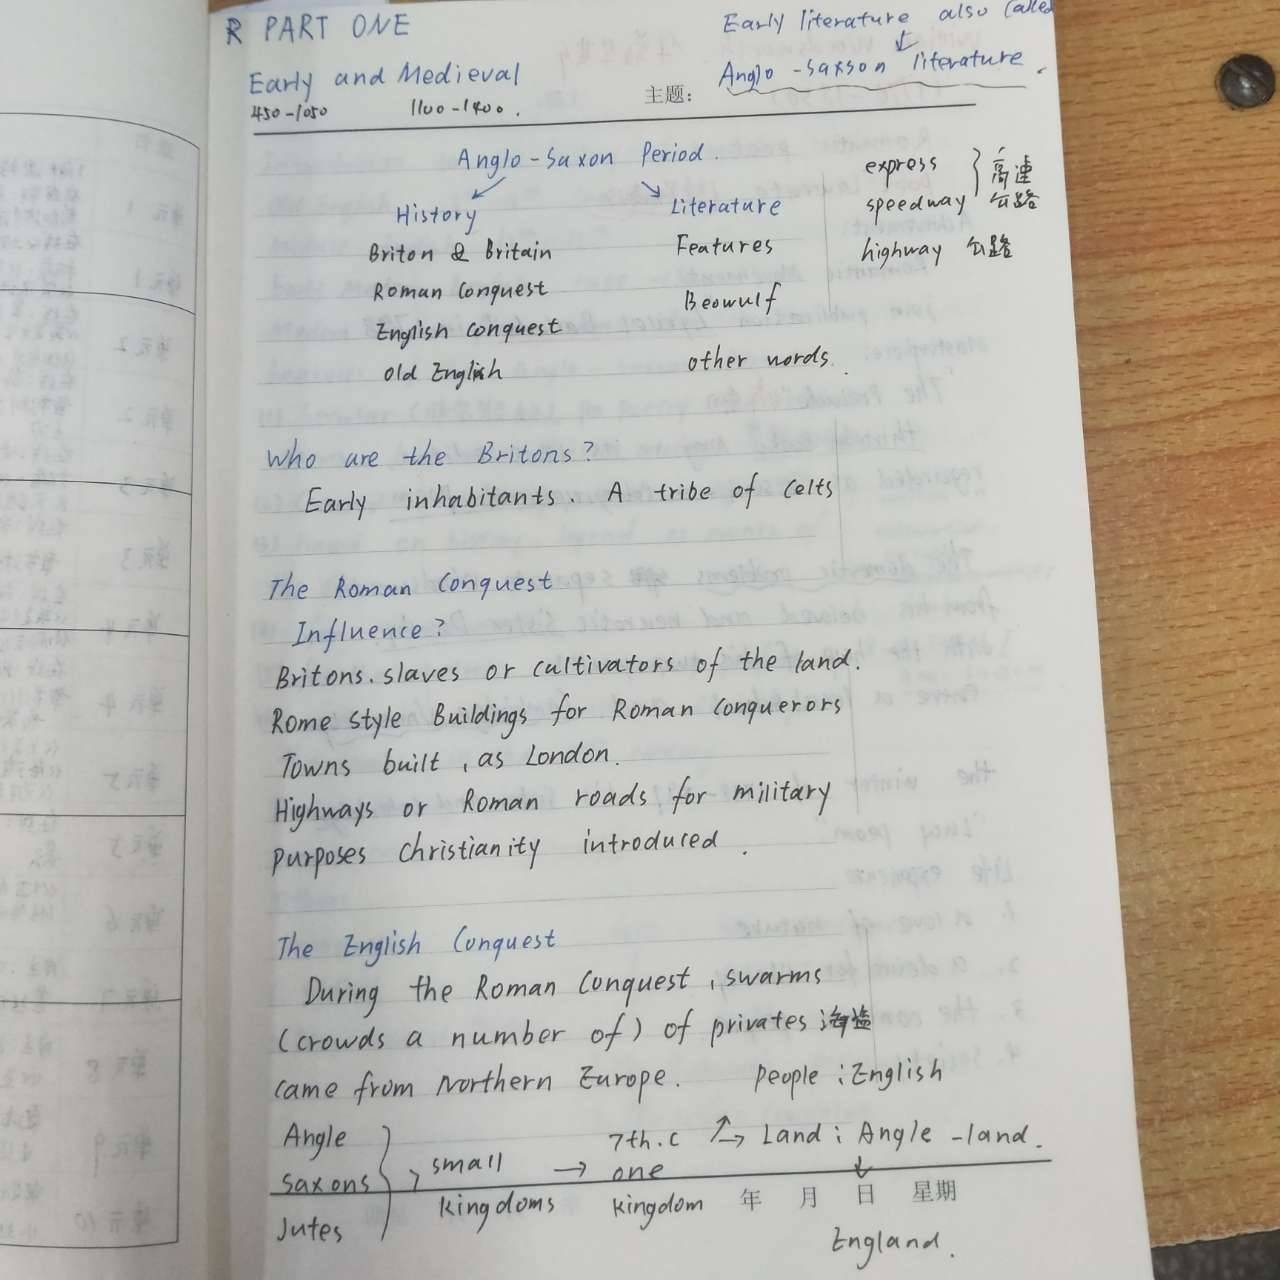 PART ONE
Early literature also called
Early and Medieval
Anglo-Saxson literature.
450-1050 1100-1400.
主题:
Anglo-Saxon Period.
History
Literature
Briton & Britain
Features
Roman Conquest
Beowulf
English conquest
Old English
other words.
express
speedway
高速
公路
highway 公路
Who are the Britons?
Early inhabitants. A tribe of Celts
The Roman Conquest
Influence?
Britons. slaves or cultivators of the land.
Rome style Buildings for Roman Conquerors
Towns built, as London.
Highways or Roman roads for military
purposes Christianity introduced.
The English Conquest
During the Roman Conquest, swarms
(crowds a number of) of privates 海盗
came from Northern Europe. People: English
Angle
Saxons
Jutes
small
kingdoms
→ 7th.c
one
kingdom
Land: Angle-land.
年 月 日 星期
England.